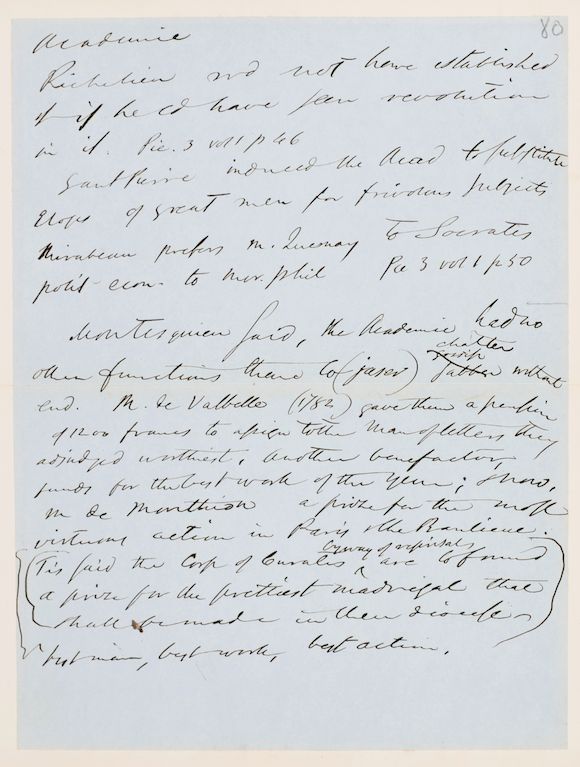 80
Academie
Richelieu wd not have established
it if he cd have seen revolution
in it. Pic. 3 vol 1 p 46
Saint Pierre induced the Acad to substitute
Elogs of great men for frivolous subjects
Mirabeau prefers M. Quesnay to Socrates
polit econ to mor. phil Pic 3 vol 1 p 50
Montesquieu said, the Academie had no
chatter
other functions than to (jaser) gossip jabber without
end. M. de Valbelle (1782) gave them a pension
of 1200 francs to assign to the Man of letters they
adjudged worthiest, another benefactor,
funds for the best work of the year; & now,
M de Monthion a prize for the most
virtuous action in Paris & the Banlieue.
by way of reprisals
Tis said the Corp of Curates are to found
a prize for the prettiest madrigal that
shall be made in their diocese
best man, best work, best action.